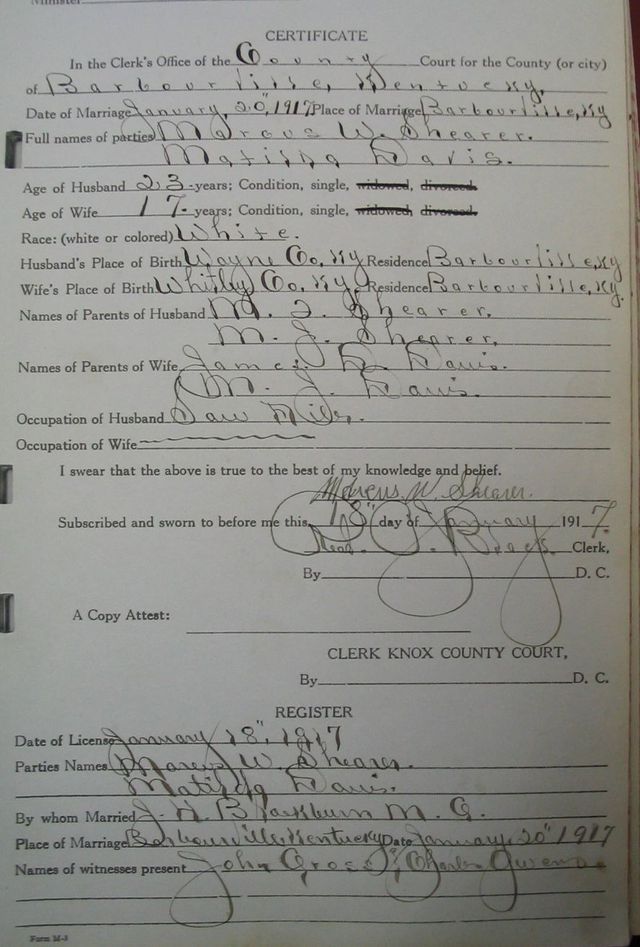 Minister
CERTIFICATE
In the Clerk's Office of the County Court for the County (or city)
of Barbourville, Kentucky,
Date of Marriage January, 20", 1917 Place of Marriage Barbourville, Ky
Full names of parties Marcus W. Shearer.
Matilda Davis.
Age of Husband 23 years; Condition, single, widowed, divorced.
Age of Wife 17. years; Condition, single, widowed, divorced.
Race: (white or colored) White.
Husband's Place of Birth Wayne Co, Ky Residence Barbourville, Ky
Wife's Place of Birth Whitley Co, Ky, Residence Barbourville, Ky.
Names of Parents of Husband M. Shearer,
M. J. Shearer,
Names of Parents of Wife James Davis.
M. J. Davis.
Occupation of Husband Saw
Occupation of Wife
I swear that the above is true to the best of my knowledge and belief.
Marcus W. Shearer.
Subscribed and sworn to before me this 18" day of January 1917.
Read. Clerk,
By D. C.
A Copy Attest:
CLERK KNOX COUNTY COURT,
By D. C.
REGISTER
Date of License January 18", 1917
Parties Names Marcus W. Shearer.
Matilda Davis.
By whom Married J. H. Blackburn M. G.
Place of Marriage Barbourville Kentucky Date January, 20" 1917
Names of witnesses present John Gross, Charles
Form M-3